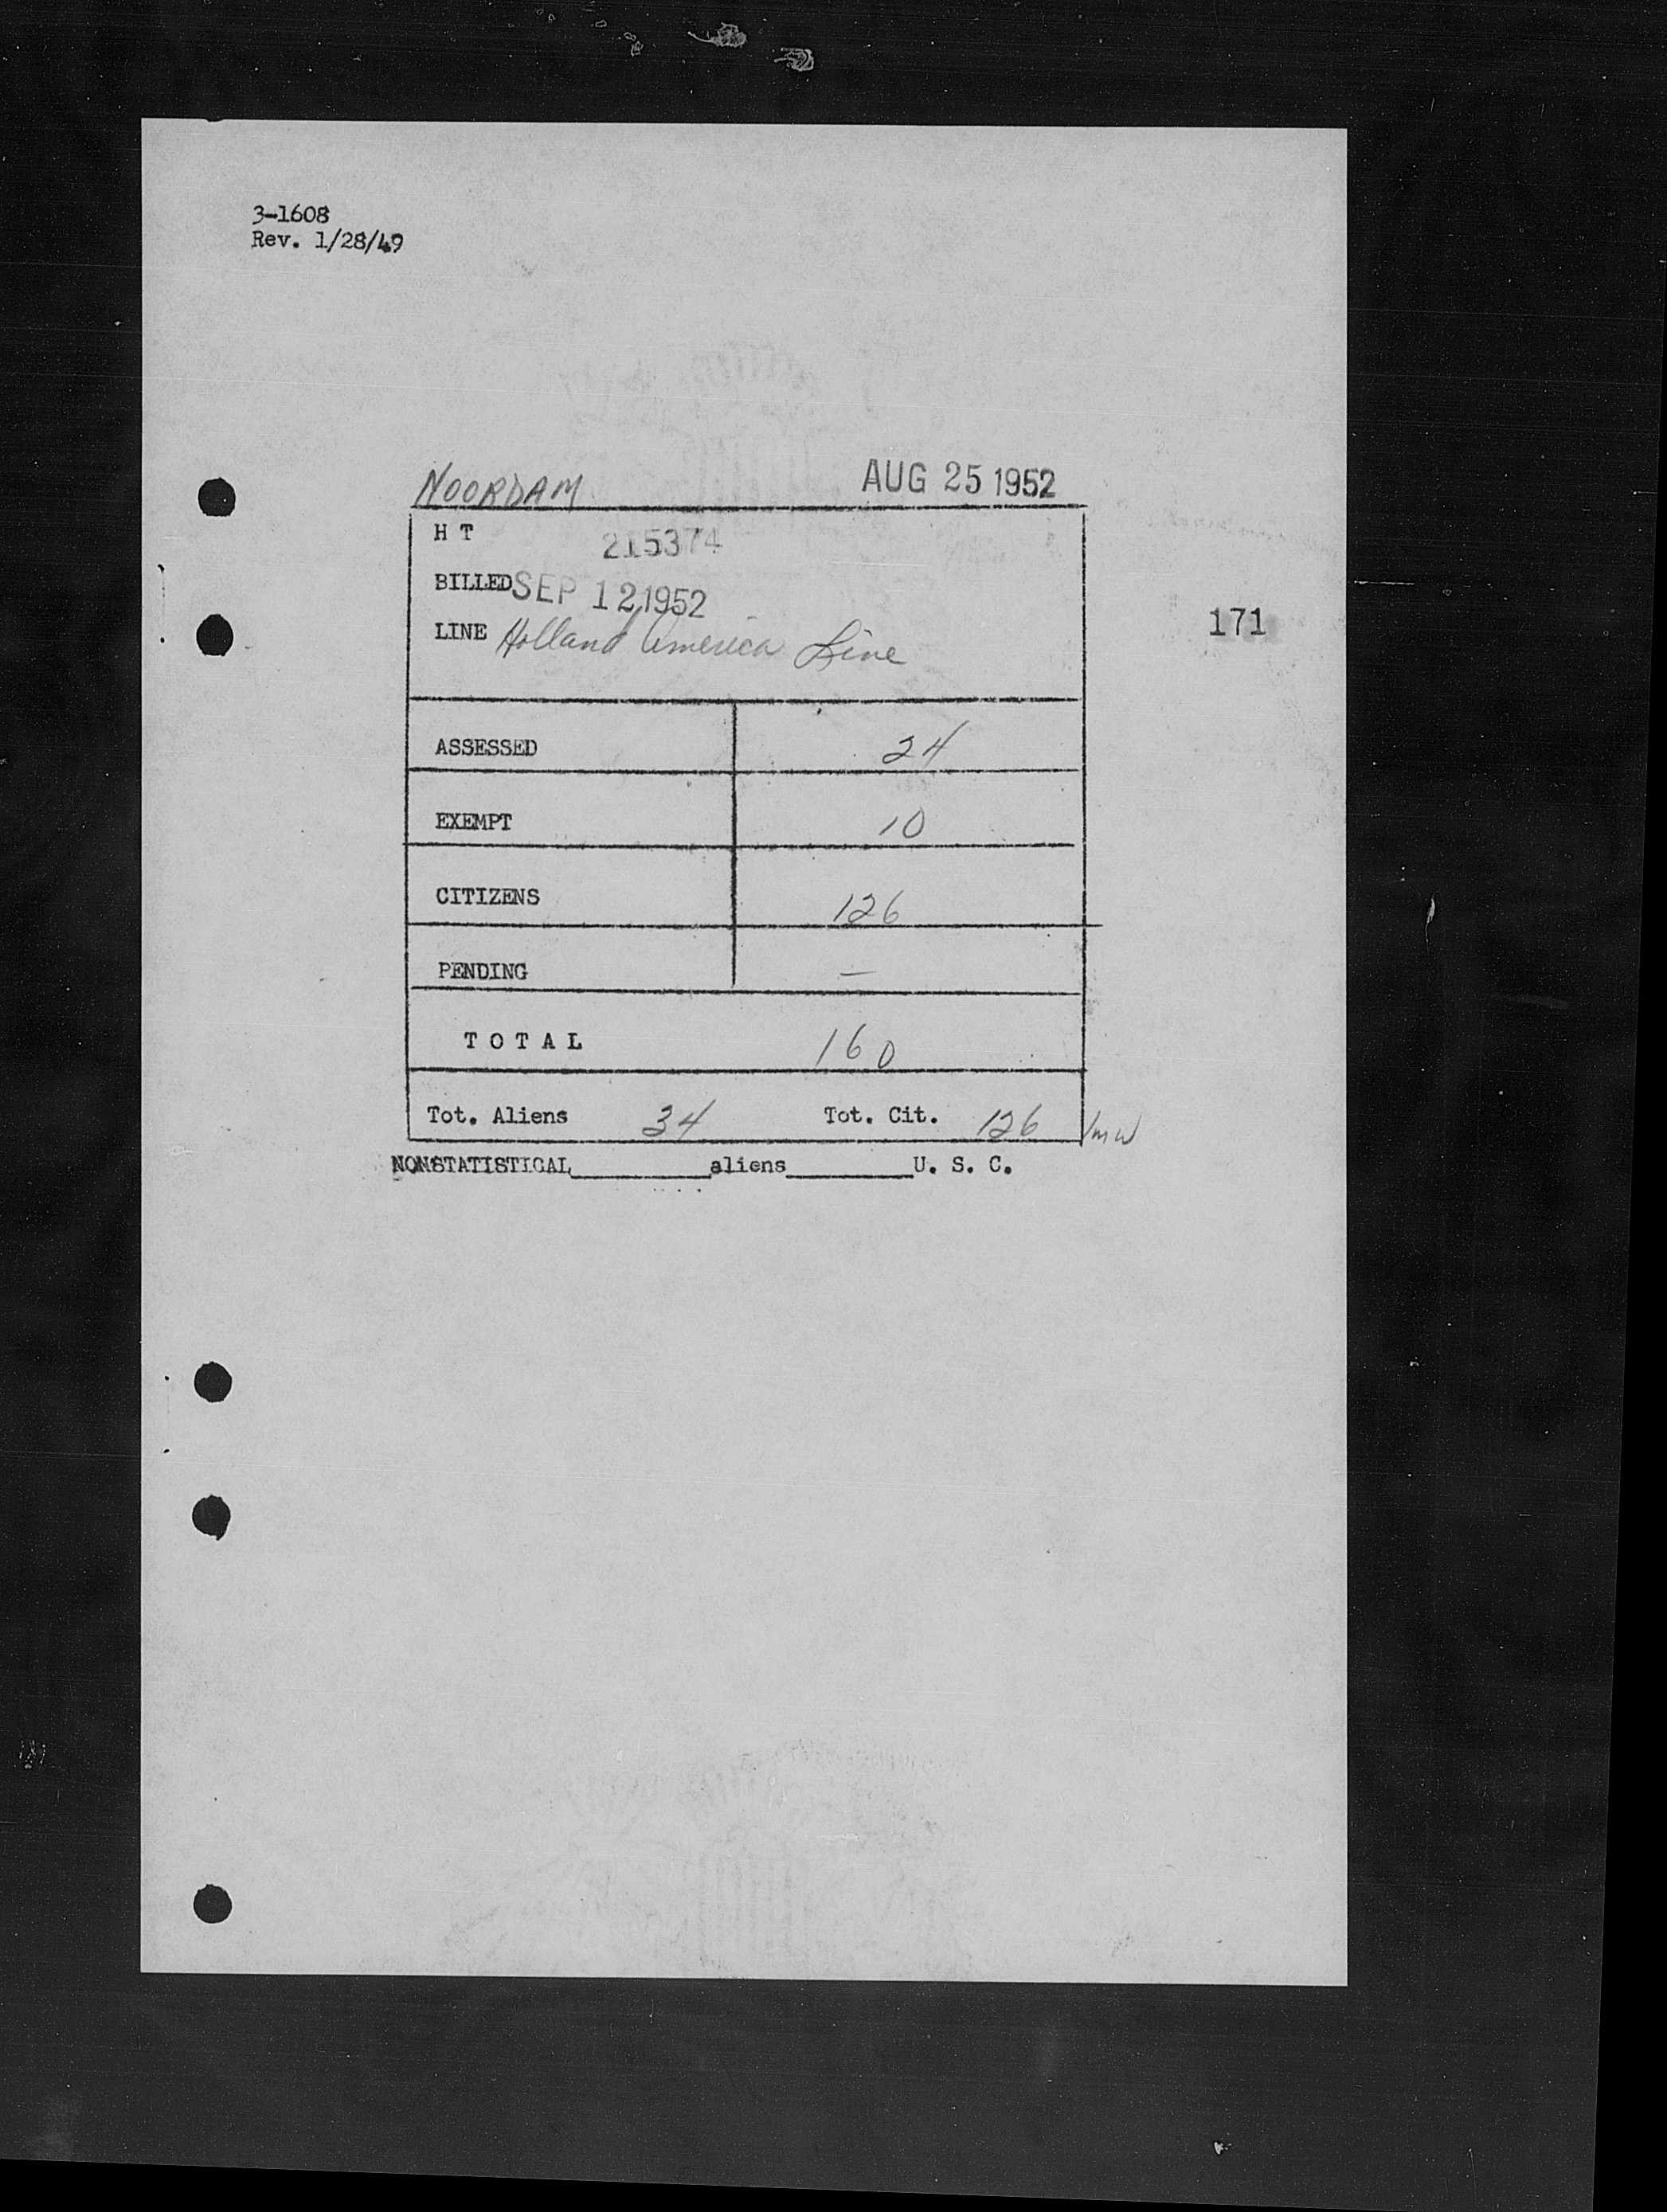 3-1608
Rev. 1/28/49
NOORDAM AUG 25 1952
H T 215374
BILLED SEP 12 1952
LINE Holland America Line
171
ASSESSED 24
EXEMPT 10
CITIZENS 126
PENDING —
T O T A L 160
Tot. Aliens 34 Tot. Cit. 126 /mw
NONSTATISTICAL__________aliens__________U. S. C.